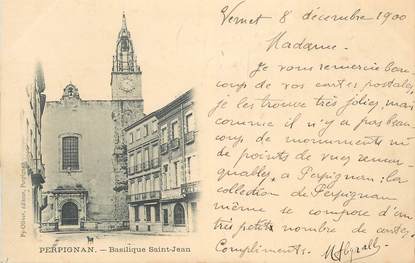 Vernet 8 décembre 1900
Madame.
Je vous remercie beau
coup de vos cartes postales,
je les trouve très jolies, mais
comme il n'y a pas beau
coup de monuments ni
de points de vues remar
quables, à Perpignan; la
collection de Perpignan
même se compose d'un
très petit nombre de cartes.
Compliments.
Py-Oliver, éditeur, Perpignan
PERPIGNAN. — Basilique Saint-Jean